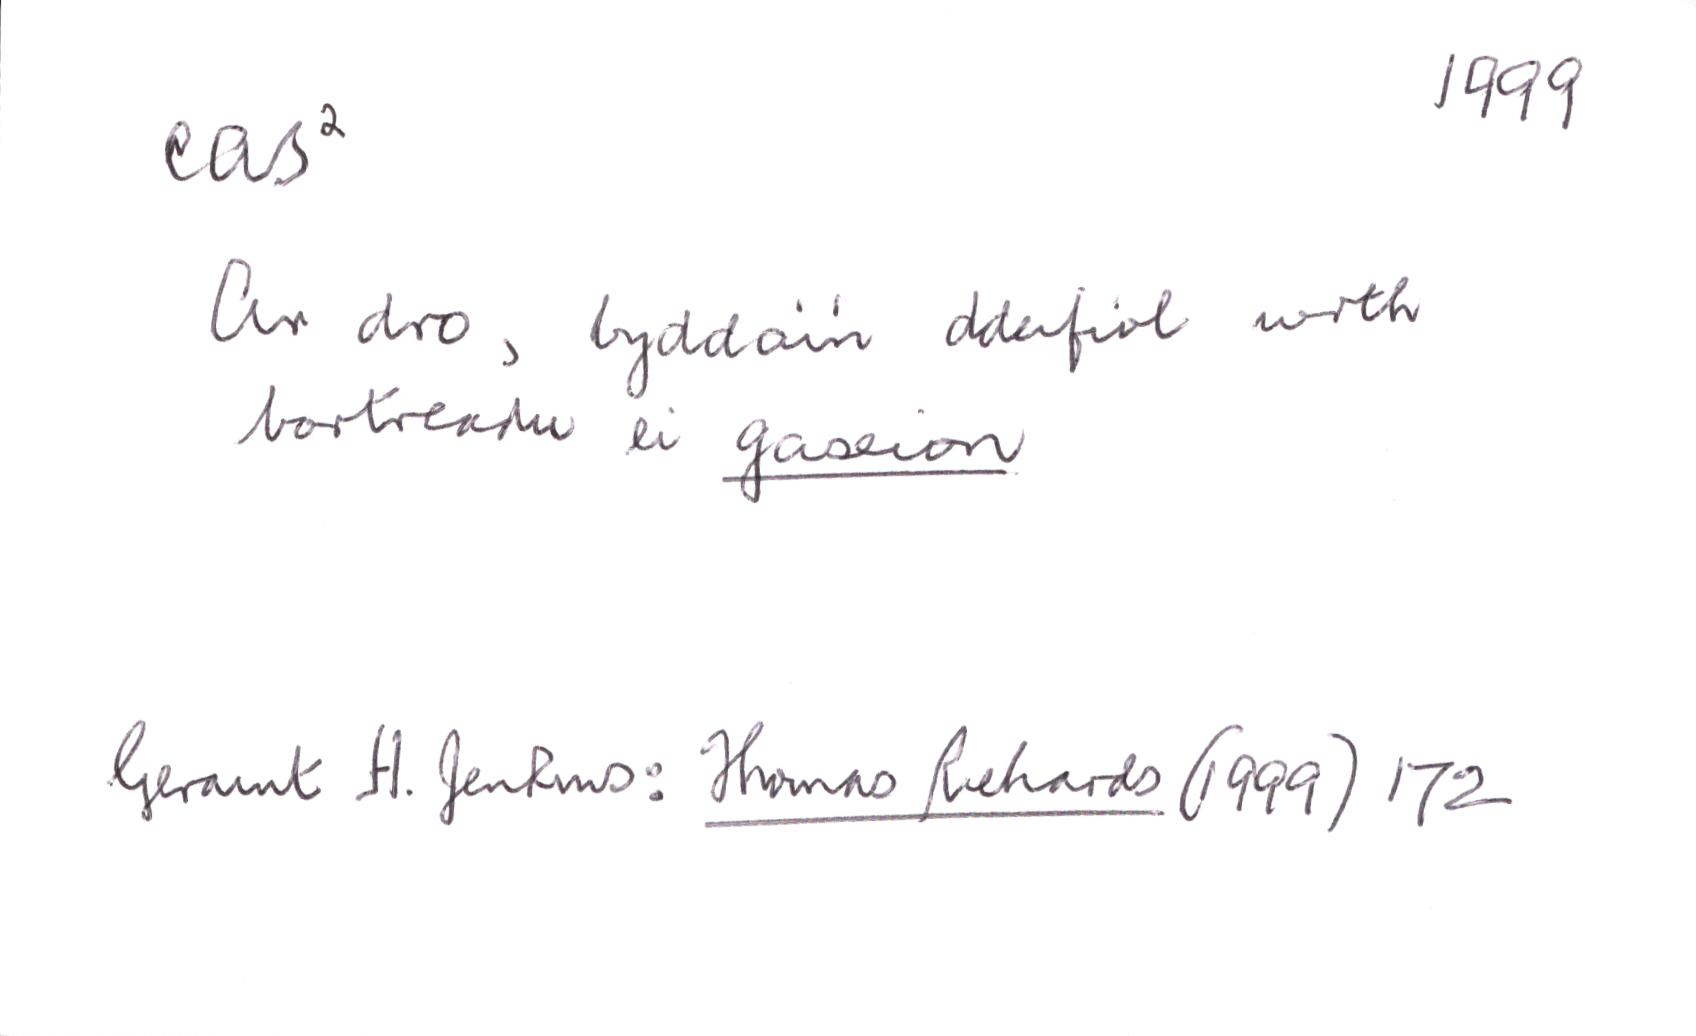 1999
cas²
Ar dro, byddai'n ddeifiol wrth
bortreadu ei gaseion
Geraint H. Jenkins: Thomas Richards (1999) 172